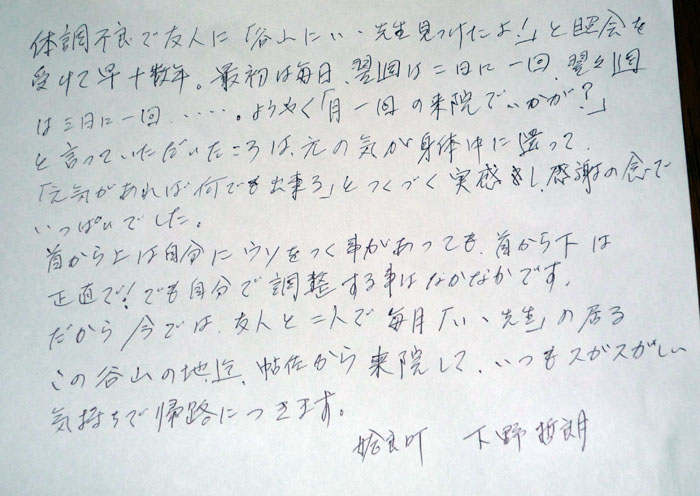 体調不良で友人に「谷山にいい先生見つけたよ!」と照会を
受けて早十数年。最初は毎日、翌週は二日に一回、翌々週
は三日に一回……。ようやく「月一回の来院でいかが?」
と言っていただいたころは、元の気が身体中に還って、
「元気があれば何でも出来る」とつくづく実感し、感謝の念で
いっぱいでした。
首から上は自分にウソをつく事があっても、首から下は
正直で!でも自分で調整する事はなかなかです。
だから今では、友人と二人で毎月「いい先生」の居る
この谷山の地迄、帖佐から来院して、いつもスガスガしい
気持ちで帰路につきます。
姶良町 下野哲朗